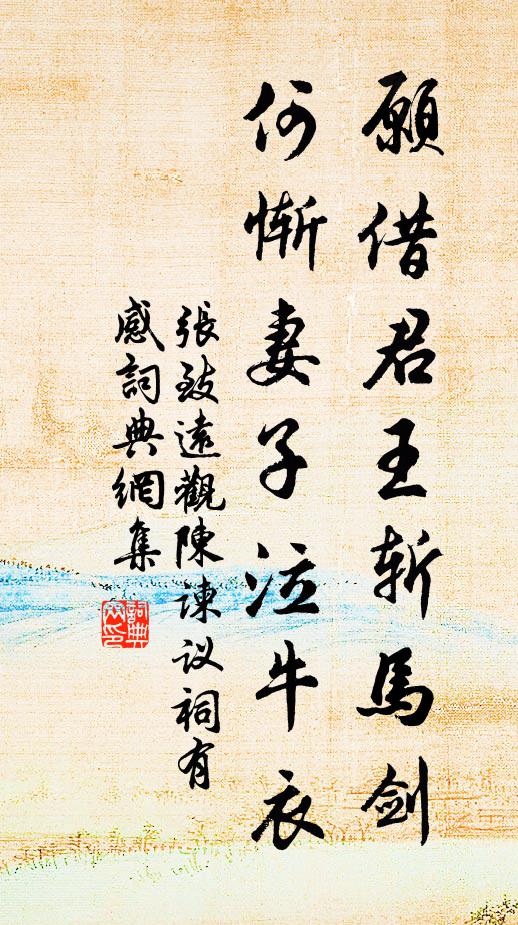 願借君王斬馬劍
何慚妻子泣牛衣
張致遠觀陳諫议祠有
感詞典網集
詞典
网印